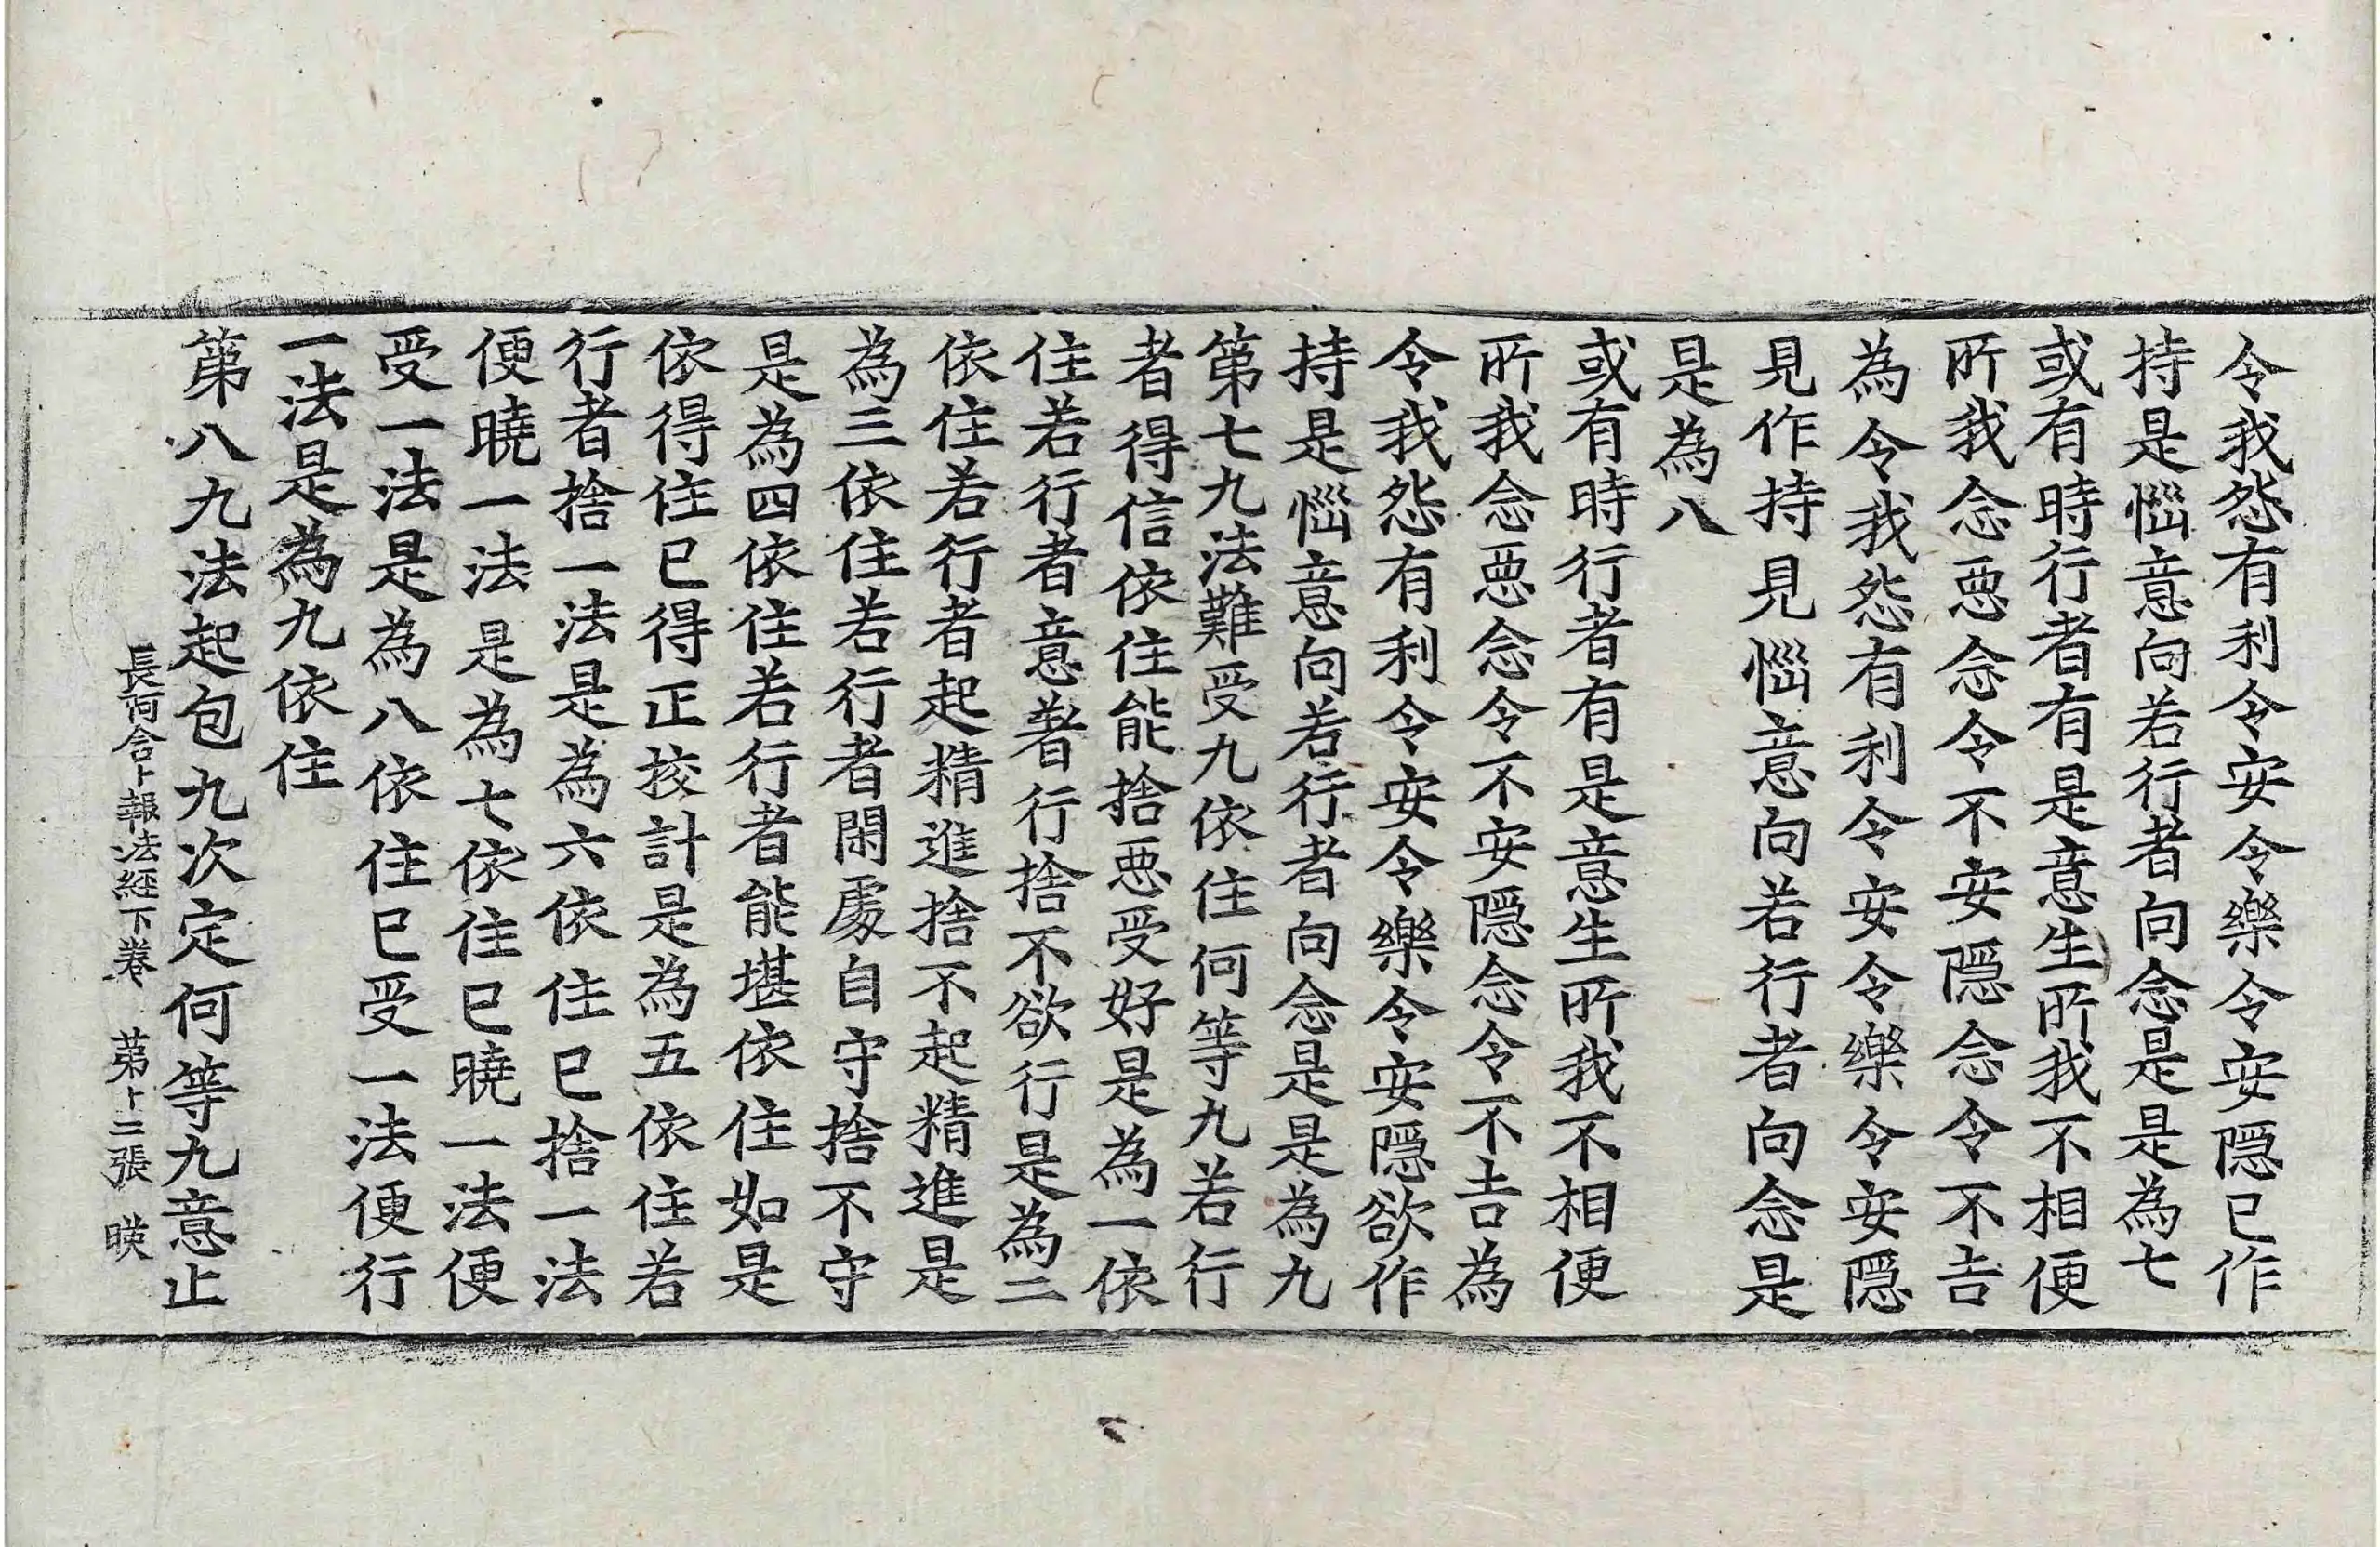 令我怨有利令安令樂令安隠已作
持是惱意向若行者向念是是為七
或有時行者有是意生所我不相便
所我念悪念令不安隠念令不吉
為令我怨有利令安令樂令安隠
見作持見惱意向若行者向念是
是為八
或有時行者有是意生所我不相便
所我念悪念令不安隠念令不吉為
令我怨有利令安令樂令安隠欲作
持是惱意向若行者向念是是為九
第七九法難受九依住何等九若行
者得信依住能捨悪受好是為一依
住若行者意著行捨不欲行是為二
依住若行者起精進捨不起精進是
為三依住若行者閑處自守捨不守
是為四依住若行者能堪依住如是
依得住已得正挍計是為五依住若
行者捨一法是為六依住已捨一法
便曉一法是為七依住已曉一法便
受一法是為八依住已受一法便行
一法是為九依住
第八九法起包九次定何等九意止
長阿含十報法經下卷 第十二張 暎